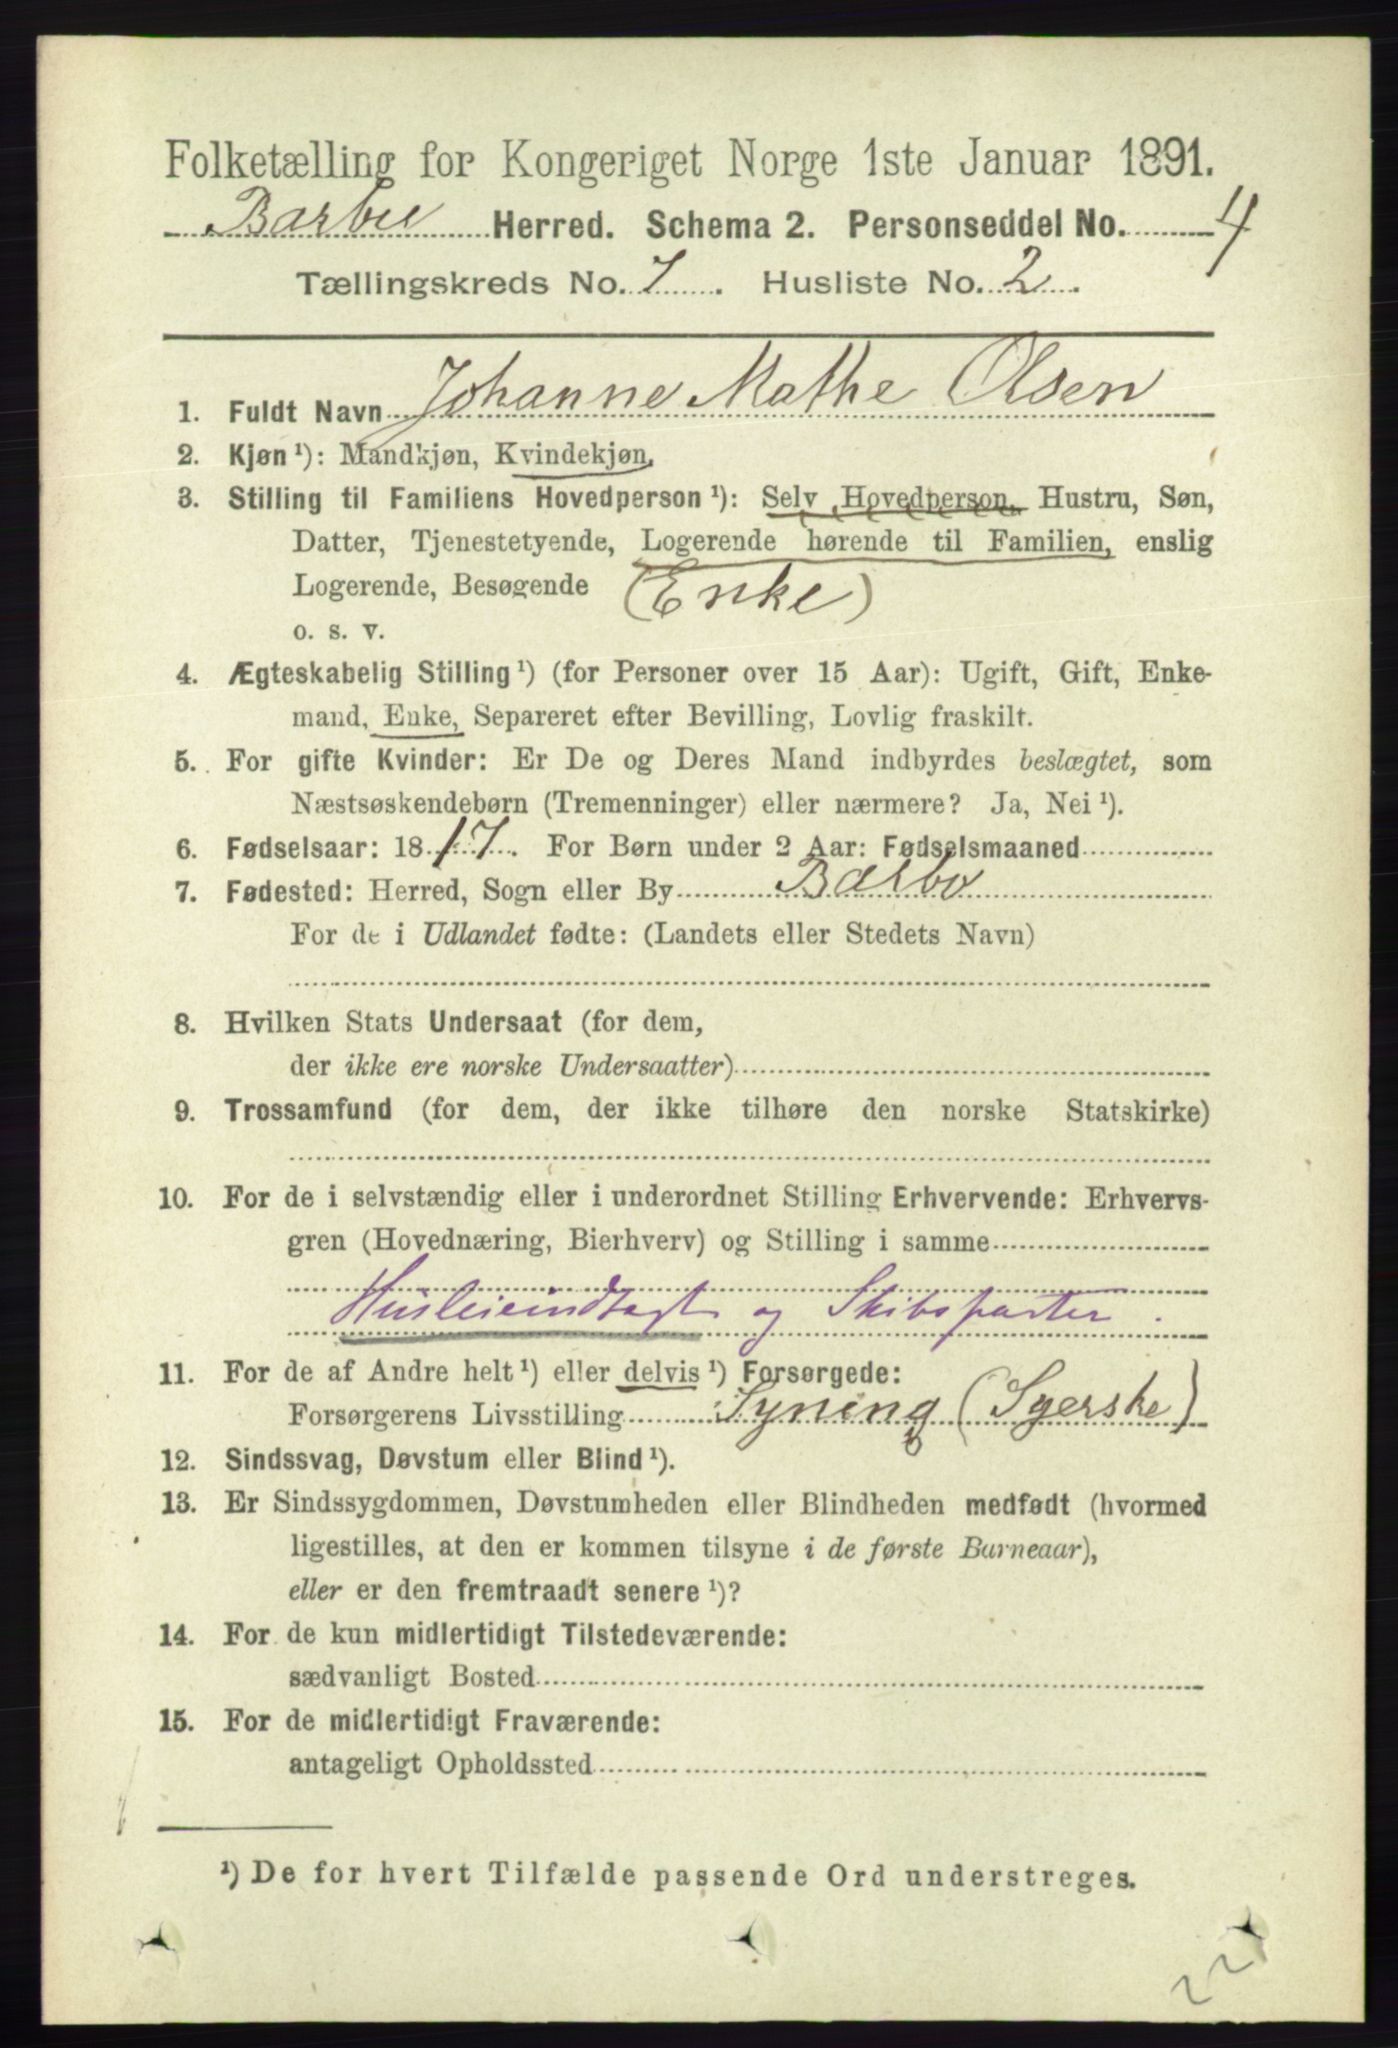 Folketælling for Kongeriget Norge 1ste Januar 1891.
Barbu Herred. Schema 2. Personseddel No. 4
Tællingskreds No. 7. Husliste No. 2.
1. Fuldt Navn Johanne Mathe Olsen
2. Kjøn¹): Mandkjøn, Kvindekjøn,
3. Stilling til Familiens Hovedperson¹): Selv Hovedperson, Hustru, Søn,
Datter, Tjenestetyende, Logerende hørende til Familien, enslig
Logerende, Besøgende (Enke)
o. s. v.
4. Ægteskabelig Stilling¹) (for Personer over 15 Aar): Ugift, Gift, Enke-
mand, Enke, Separeret efter Bevilling, Lovlig fraskilt.
5. For gifte Kvinder: Er De og Deres Mand indbyrdes beslægtet, som
Næstsøskendebørn (Tremenninger) eller nærmere? Ja, Nei¹).
6. Fødselsaar: 1817. For Børn under 2 Aar: Fødselsmaaned
7. Fødested: Herred, Sogn eller By Barbo
For de i Udlandet fødte: (Landets eller Stedets Navn)
8. Hvilken Stats Undersaat (for dem,
der ikke ere norske Undersaatter)
9. Trossamfund (for dem, der ikke tilhøre den norske Statskirke)
10. For de i selvstændig eller i underordnet Stilling Erhvervende: Erhvervs-
gren (Hovednæring, Bierhverv) og Stilling i samme
Husleieindtægt og Skibsparter.
11. For de af Andre helt¹) eller delvis¹) Forsørgede:
Forsørgerens Livsstilling Syning (Syerske)
12. Sindssvag, Døvstum eller Blind¹).
13. Er Sindssygdommen, Døvstumheden eller Blindheden medfødt (hvormed
ligestilles, at den er kommen tilsyne i de første Barneaar),
eller er den fremtraadt senere¹)?
14. For de kun midlertidigt Tilstedeværende:
sædvanligt Bosted
15. For de midlertidigt Fraværende:
antageligt Opholdssted
¹) De for hvert Tilfælde passende Ord understreges.
22